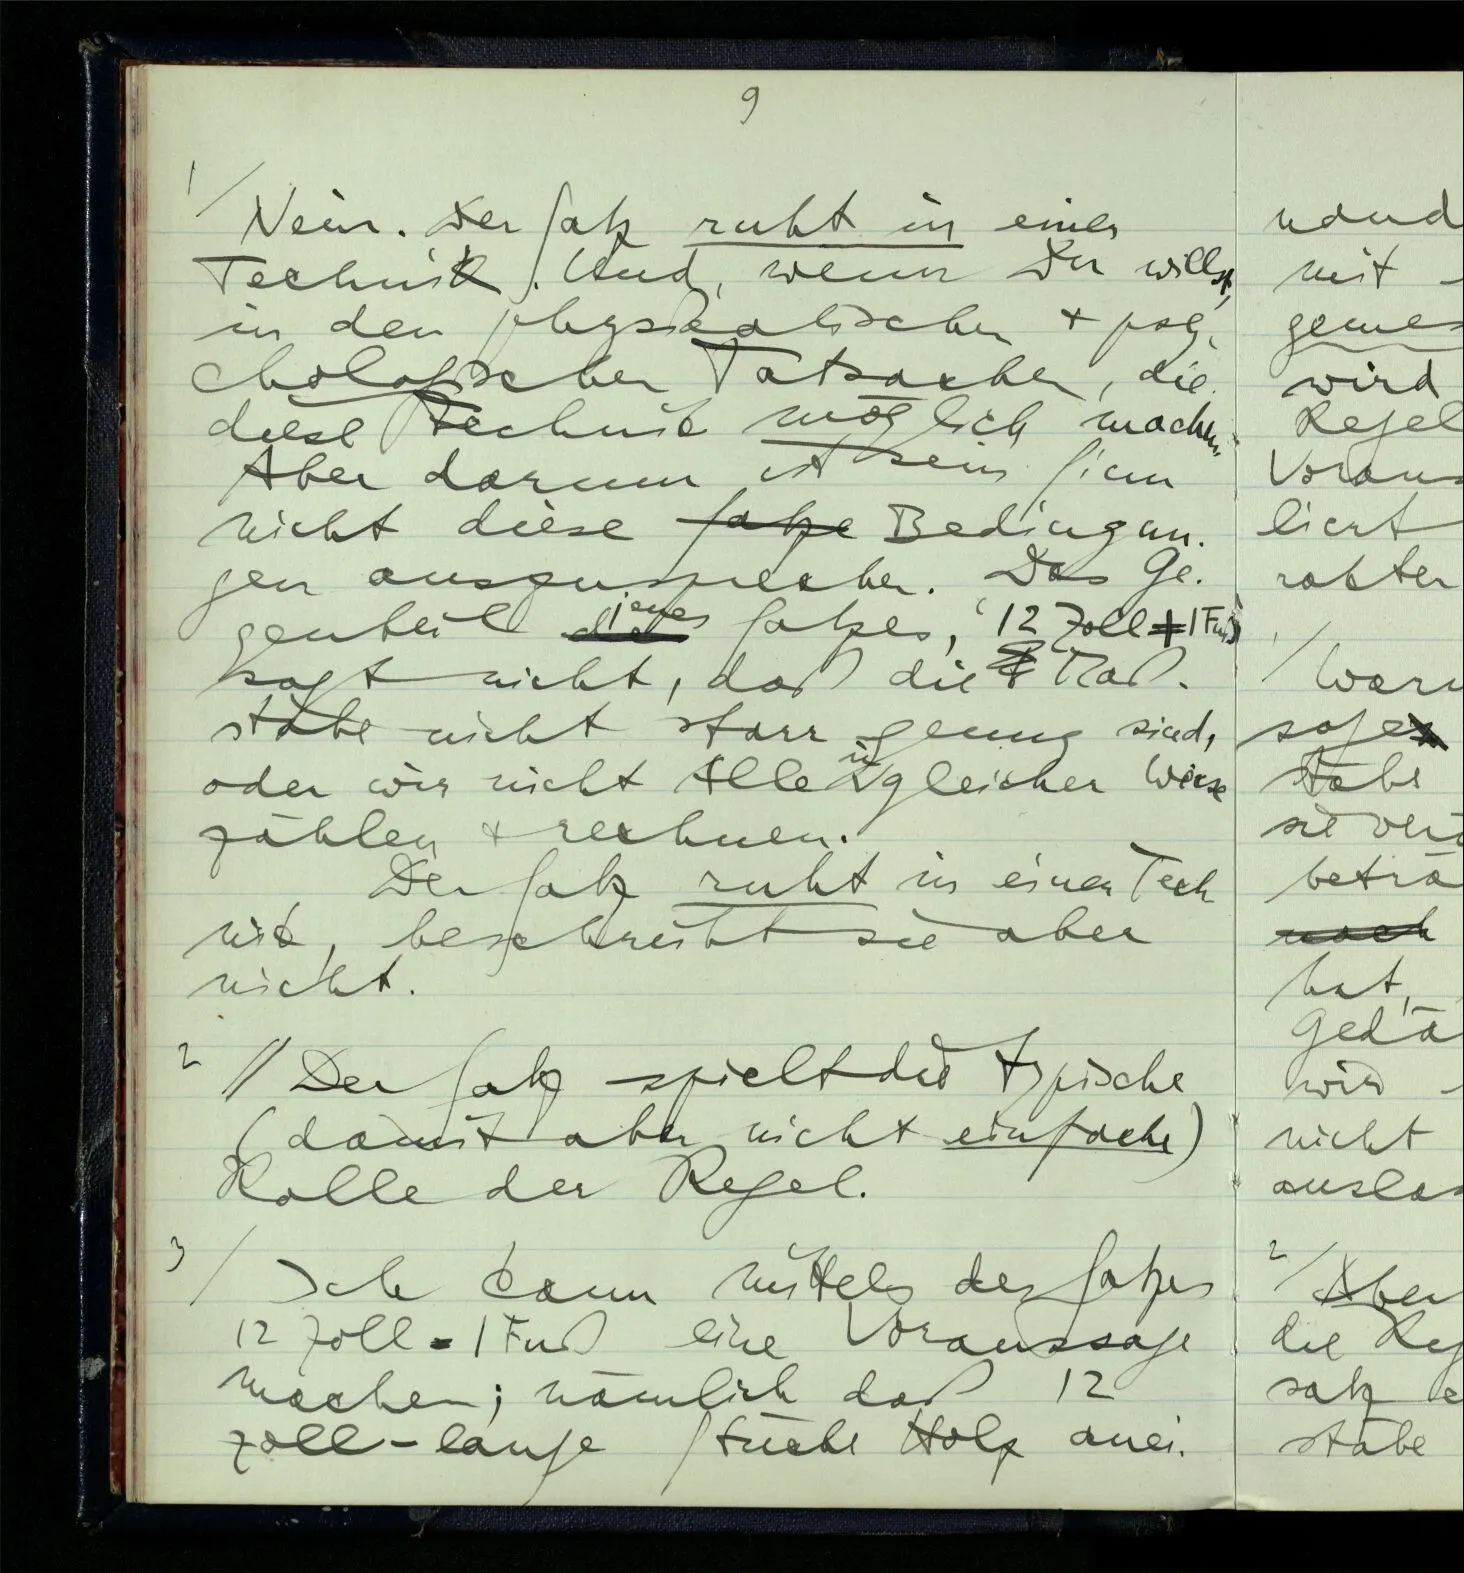 9
1/
Nein. Der Satz ruht in einer
Technik. Und, wenn Du willst,
in den physikalischen + psy-
chologischen Tatsachen, die
diese Technik möglich machen.
Aber darum ist sein Sinn
nicht diese Sätze Bedingun-
gen auszusprechen. Das Ge-
genteil jenes Satzes, '12 Zoll ≠ 1 Fuß'
sagt nicht, daß die Maß-
stäbe nicht starr genug sind,
oder wir nicht Alle in gleicher Weise
zählen + rechnen.
Der Satz ruht in einer Tech
nik, beschreibt sie aber
nicht.
2 // Der Satz spielt die typische
(damit aber nicht einfache)
Rolle der Regel.
3 /
Ich kann mittels des Satzes
12 Zoll = 1 Fuß eine Voraussage
machen; nämlich daß 12
zoll-lange Stücke Holz anei-
mit
wird
Regel
liert
1/
2/
Aber
nicht
hat,
wir
stäbe